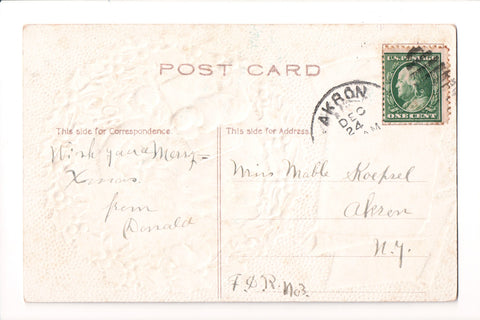 POST CARD
U.S. POSTAGE
ONE CENT
AKRON
DEC
24
AM
This side for Correspondence.
This side for Address.
Wish you a Merry
Xmas.
from
Donald
Miss Mable Koepsel
Akron
N.Y.
No3.